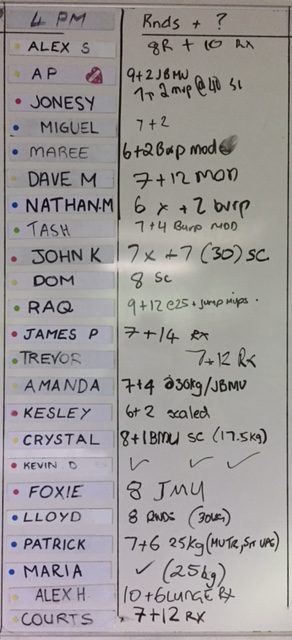 4 PM Rnds + ?
ALEX S 8R + 10 RX
AP 9+2JBMU
JONESY 7+2 mup @40 sc
MIGUEL 7+2
MAREE 6+2 Burp mod
DAVE M 7+12 MOD
NATHAN.M 6 x +2 burp
TASH 7+4 Burp MOD
JOHN K 7x +7 (30) SC
DOM 8 SC
RAQ 9+12 @25 + jump mups.
JAMES P 7+14 RX
TREVOR 7+12 RX
AMANDA 7+4 @30kg/JBMU
KESLEY 6+2 scaled
CRYSTAL 8+1BMU SC (17.5kg)
KEVIN D ✓ ✓ ✓
FOXIE 8 JMU
LLOYD 8 RNDS (30KG)
PATRICK 7+6 25kg (MUTR, SIT UPS)
MARIA ✓ (25kg)
ALEX H 10+6LUNGE RX
COURTS 7+12 RX